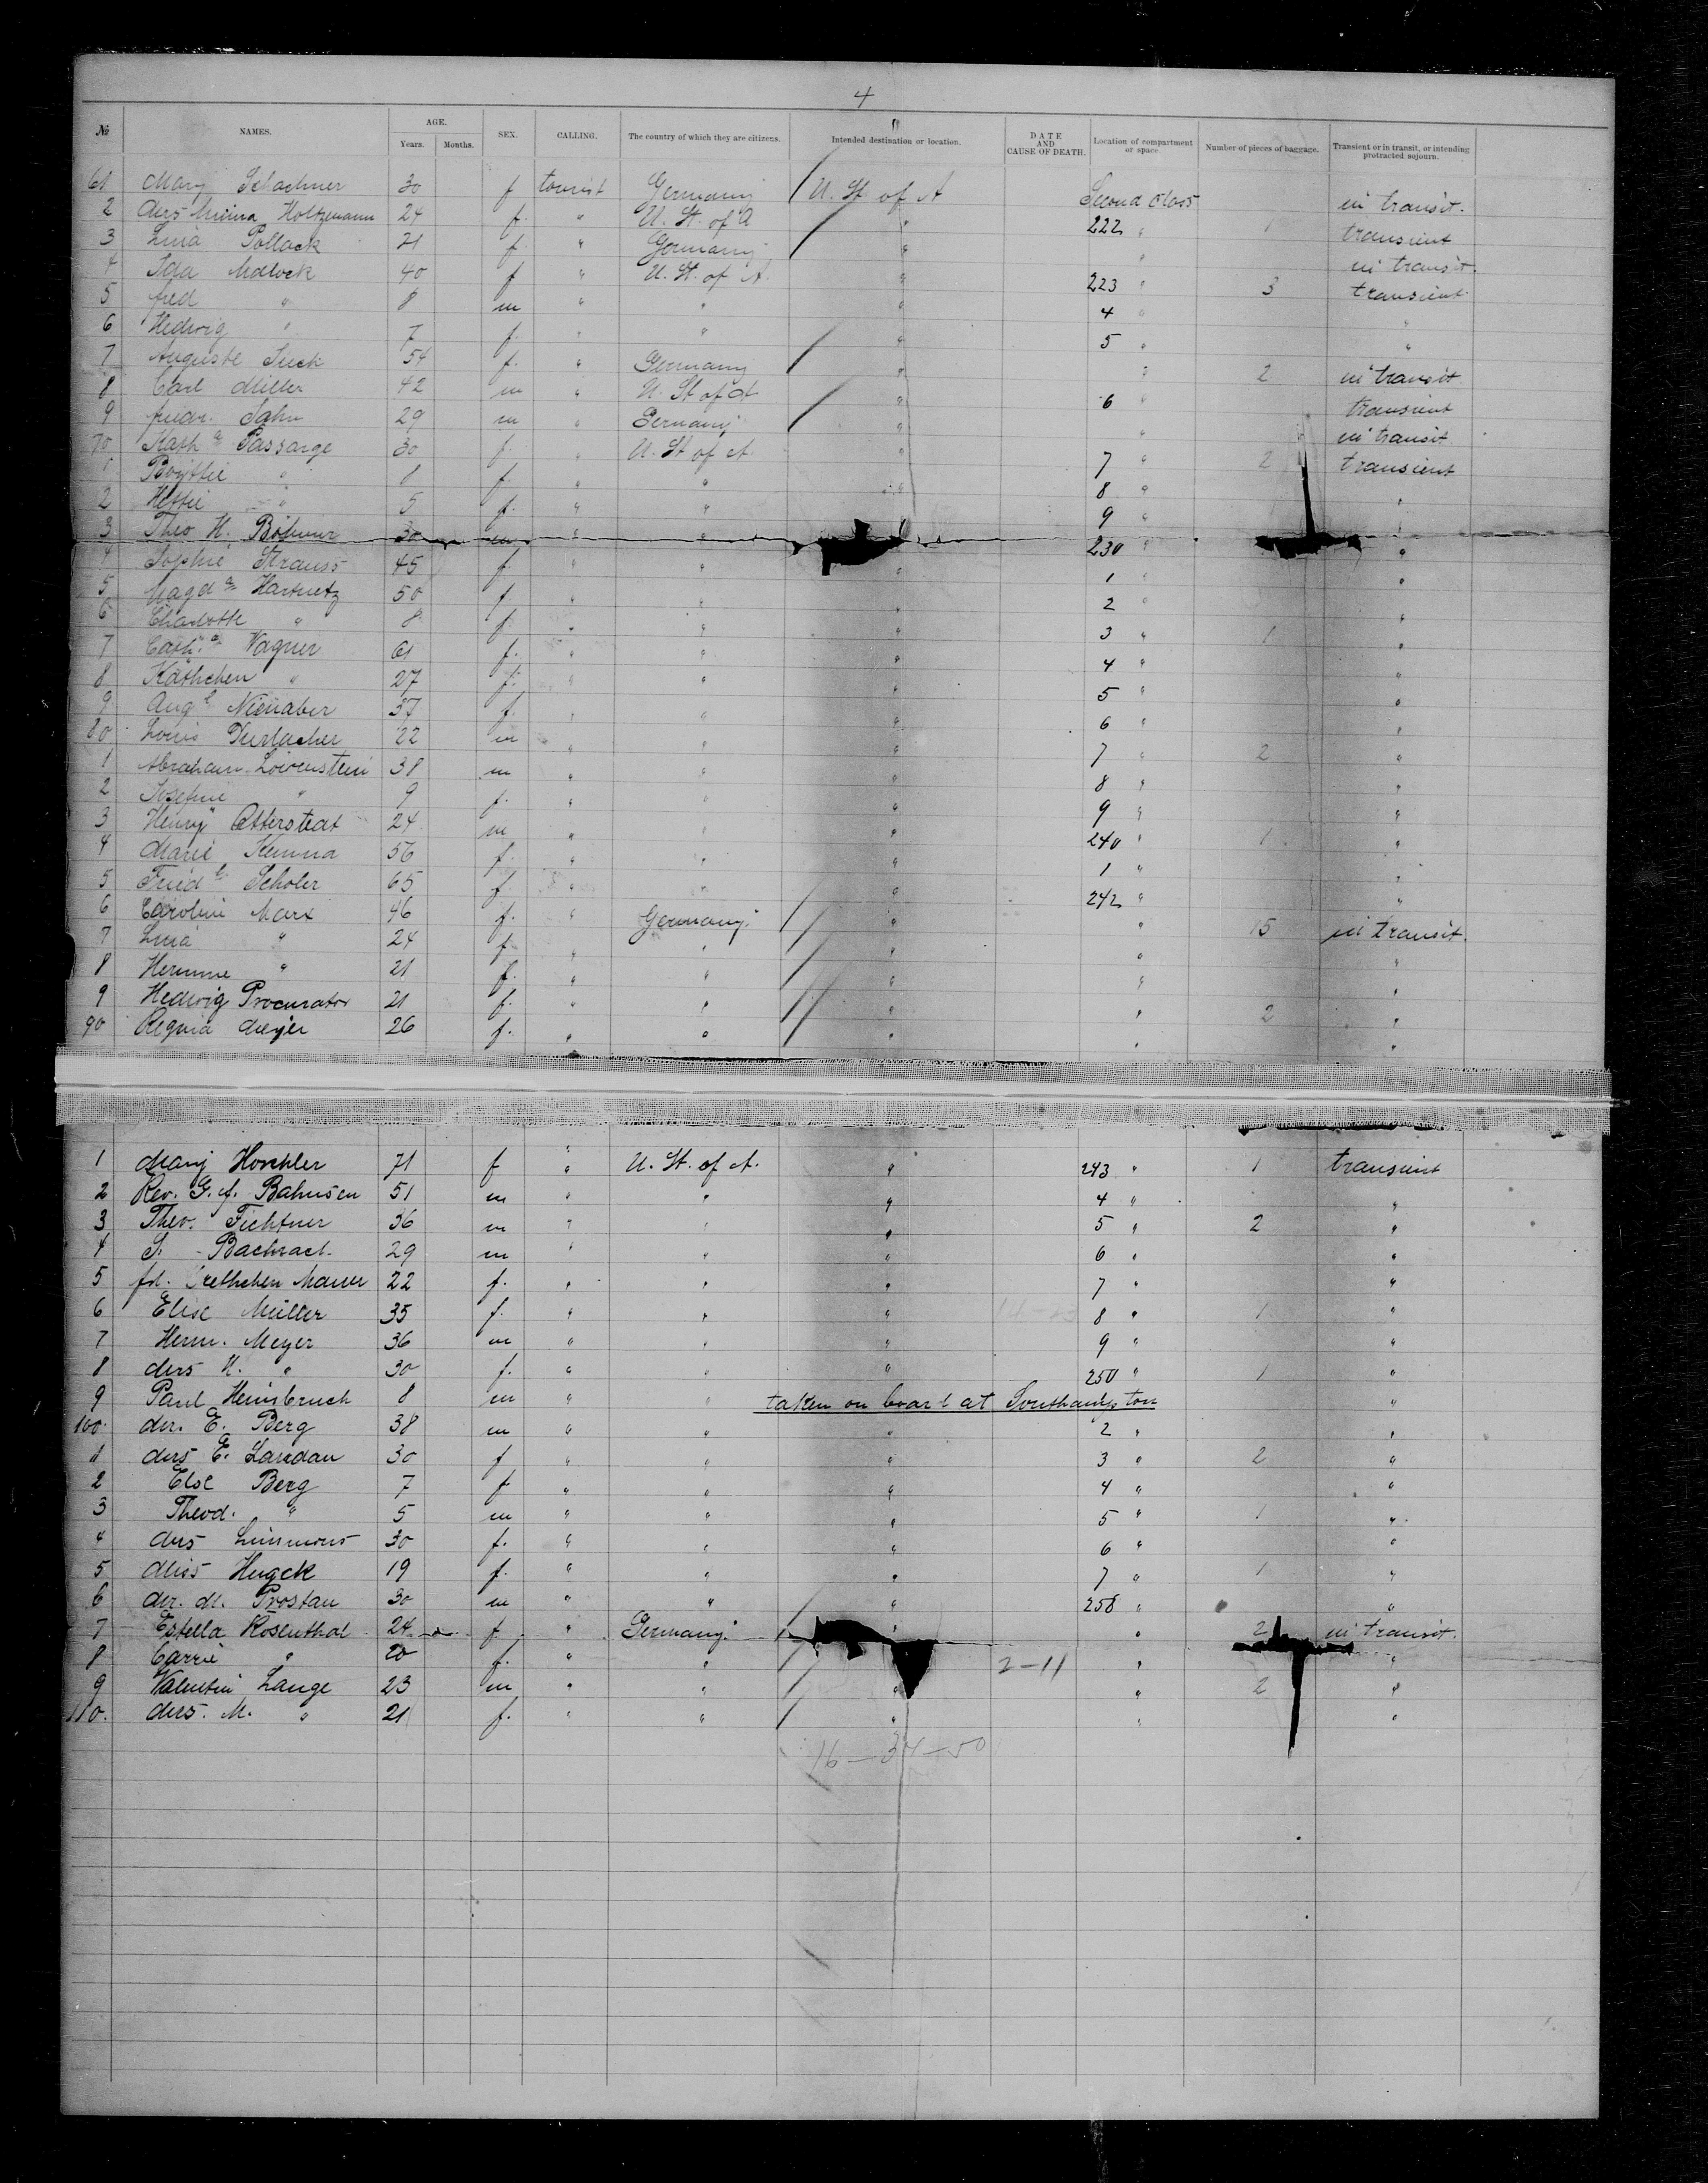 4
№ NAMES. AGE. Years. Months. SEX. CALLING. The country of which they are citizens. Intended destination or location. DATE AND CAUSE OF DEATH. Location of compartment or space. Number of pieces of baggage. Transient or in transit, or intending protracted sojourn.
61 Mary Schachner 30 f tourist Germany U. St. of A Second Class in transit.
2 Mrs Minna Holtzmann 24 f. " U. St. of A " 222 " 1 transient
3 Lina Pollack 21 f " Germany " " in transit.
4 Ida Matock 40 f " U. St. of A. " 223 " 3 transient
5 fred " 8 m " " " 4 " "
6 Hedwig " 7 f. " " " 5 " "
7 Auguste Suck 54 f. " Germany " " 2 in transit
8 Carl Miller 42 m " U. St of A " 6 " transient
9 Jahn 29 m " Germany " " in transit
70 Kath a Passarge 30 f. " U. St of A. " 7 " 2 transient
1 " 8 f. " " " 8 " "
2 Hettie " 5 f. " " " 9 " "
3 Theo H. Böhmer 30 m " " 230 " "
4 Sophie Strauss 45 f. " " " 1 " "
5 Magd a Hartnetz 50 f. " " " 2 " "
6 Charlotte " 8 f. " " " 3 " 1 "
7 Cath. a Wagner 61 f. " " " 4 " "
8 Käthchen " 27 f. " " " 5 " "
9 Aug e Nienaber 37 f. " " " 6 " "
80 Louis Durlacher 22 m " " " 7 " 2 "
1 Abraham Löwenstein 38 m " " " 8 " "
2 Josefine " 9 f. " " " 9 " "
3 Henry Otterstedt 24 m " " " 240 " 1 "
4 Marie Kemna 56 f. " " " 1 " "
5 Fried e Scholer 65 f " " " 242 " "
6 Caroline Marx 46 f. " Germany. " " 15 in transit.
7 Lina " 24 f " " " " "
8 Hermine " 21 f. " " " " "
9 Hedwig Procurator 21 f. " " " " 2 "
90 Regina Meyer 26 f. " " " " "
1 Mary Hoechler 71 f " U. St. of A. " 243 " 1 transient
2 Rev. G. f. Bahnsen 51 m " " " 4 " "
3 Theo. Fichtner 36 m " " " 5 " 2 "
4 S. Bachrach 29 m " " " 6 " "
5 frl. Grethchen Maurer 22 f. " " " 7 " "
6 Elise Müller 35 f. " " " 8 " 1 "
7 Herm. Meyer 36 m " " " 9 " "
8 Mrs H. " 30 f. " " " 250 " 1 "
9 Paul Heinsbruch 8 m " " taken on board at Southampton "
100 Mr. E. Berg 38 m " " " 2 " "
1 Mrs E. Landau 30 f " " " 3 " 2 "
2 Else Berg 7 f " " " 4 " "
3 Theod. " 5 m " " " 5 " 1 "
4 Mrs Simmons 30 f. " " " 6 " "
5 Miss Hugck 19 f. " " " 7 " 1 "
6 Mr. M. Prostau 30 m " " " 258 " "
7 Estella Rosenthal 24 f " Germany. " " 2 in transit.
8 Carrie " 20 f. " " 2-11 " "
9 Valentin Lange 23 m " " " " 2 "
110. Mrs. M. " 21 f. " " " " "
16-34-50